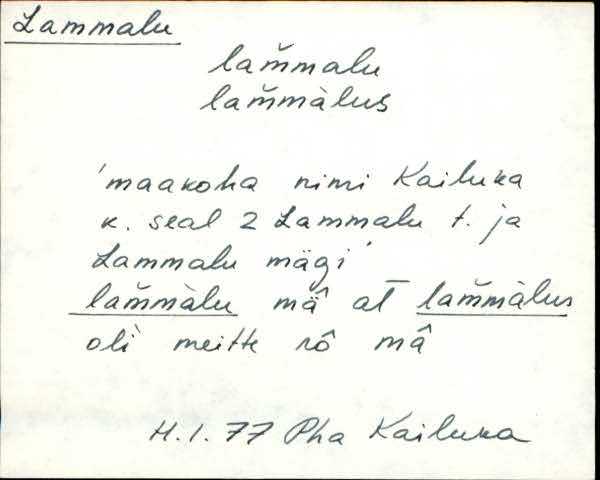 Lammalu
lam̆malu
lam̆màlus
'maakoha nimi Kailuka
k. seal 2 Lammalu t. ja
Lammalu mägi'
lam̆màlu mâ al lam̆màlus
oli meitte nô mâ
H.I.77 Pha Kailuka